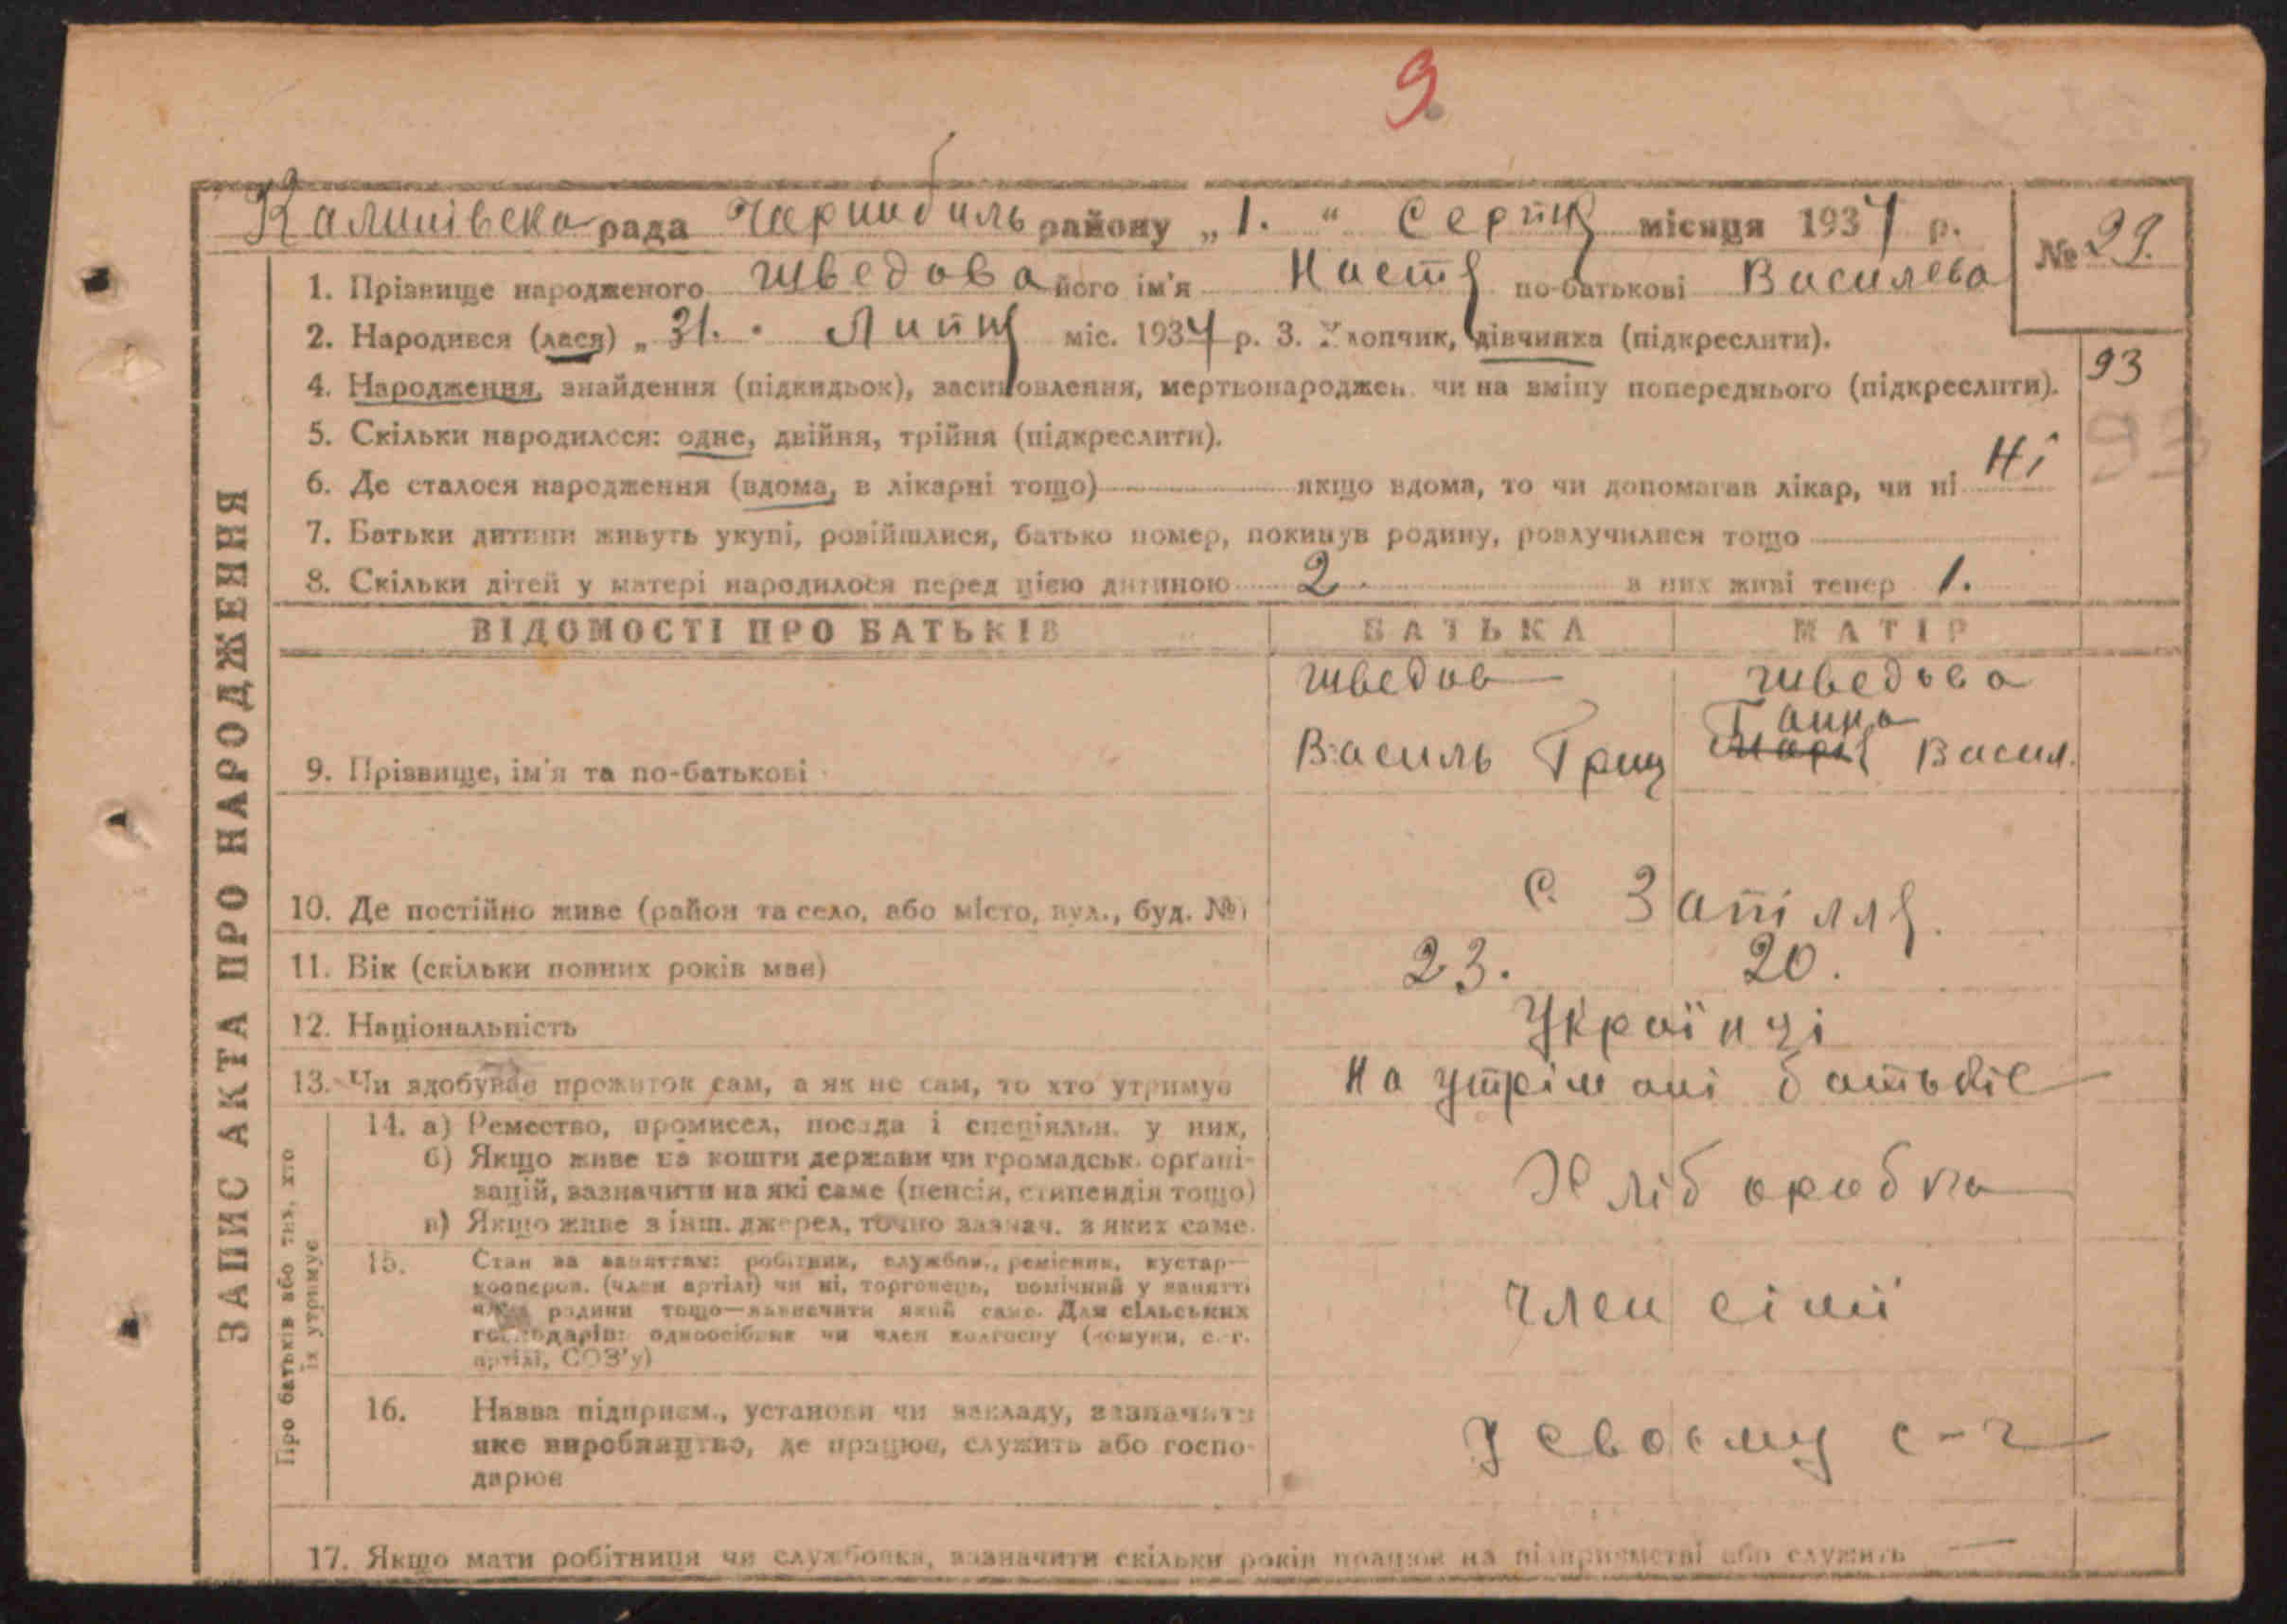 9
Калинівска рада Чорнобиль району „1. “ Серпня місяця 1934 р.
№ 29.
1. Прізвище народженого Шведова його ім'я Настя по-батькові Василева
2. Народився (лася) „31. " Липня міс. 1934 р. 3. Хлопчик, дівчинка (підкреслити).
93
4. Народження, знайдення (підкидьок), засиновлення, мертвонароджен. чи на зміну попереднього (підкреслити).
93
5. Скільки народилося: одне, двійня, трійня (підкреслити).
6. Де сталося народження (вдома, в лікарні тощо) якщо вдома, то чи допомагав лікар, чи ні Ні
7. Батьки дитини живуть укупі, розійшлися, батько помер, покинув родину, розлучилися тощо
8. Скільки дітей у матері народилося перед цією дитиною 2 з них живі тепер 1.
ЗАПИС АКТА ПРО НАРОДЖЕННЯ
ВІДОМОСТІ ПРО БАТЬКІВ БАТЬКА МАТІР
Шведов Шведова
Ганна
9. Прізвище, ім'я та по-батькові Василь Гриц Марія Васил.
10. Де постійно живе (район та село, або місто, вул., буд. №) с. Запілля.
11. Вік (скільки повних років має) 23. 20.
12. Національність Українці
13. Чи здобуває прожиток сам, а як не сам, то хто утримує на утрімані батьків
Про батьків або тих, хто їх утримує
14. а) Ремество, промисел, посада і спеціяльн. у них,
б) Якщо живе на кошти держави чи громадськ. органі-
зацій, зазначити на які саме (пенсія, стипендія тощо) Хліборобка
в) Якщо живе з інш. джерел, точно зазнач. з яких саме.
15. Стан за заняттям: робітник, службов., ремісник, кустар—
кооперов. (член артілі) чи ні, торговець, помічний у занятті
член родини тощо—зазначити який саме. Для сільських член сімії
господарів: одноосібник чи член колгоспу (комуни, с.-г.
артілі, СОЗ'у)
16. Назва підприєм., установи чи закладу, зазначити
яке виробництво, де працює, служить або госпо- у своєму с-г
дарює
17. Якщо мати робітниця чи службовка, зазначити скільки років працює на підприємстві або служить